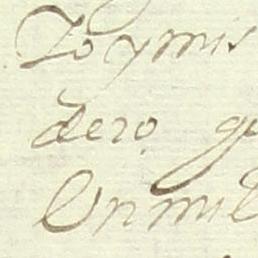 Yo y mis
dero. ge
Un mil